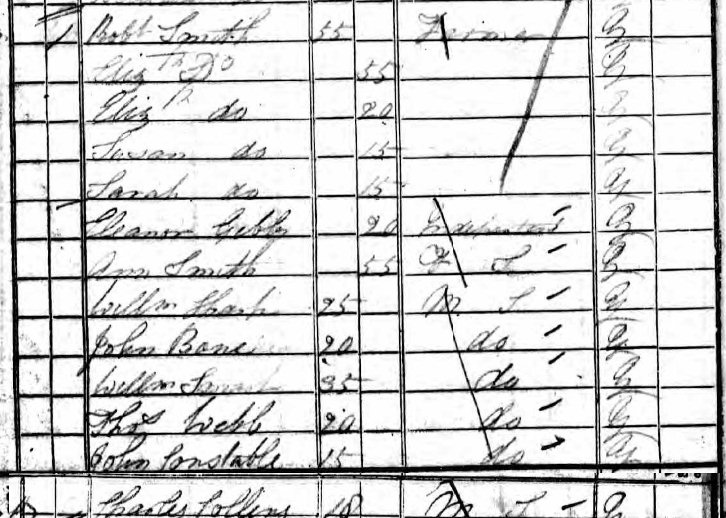 Robt Smith 55 Farmer y
Elizth Do 55 y
Elizth do 20 y
Susan do 15 y
Sarah do 15 y
Eleanor Gibby 20 Independent y
Ann Smith 55 F S y
Willm Sharp 25 M S y
John Bone 20 do y
Willm 35 do y
Thos Webb 20 do y
John Constable 15 do y
Charles Collins M S y